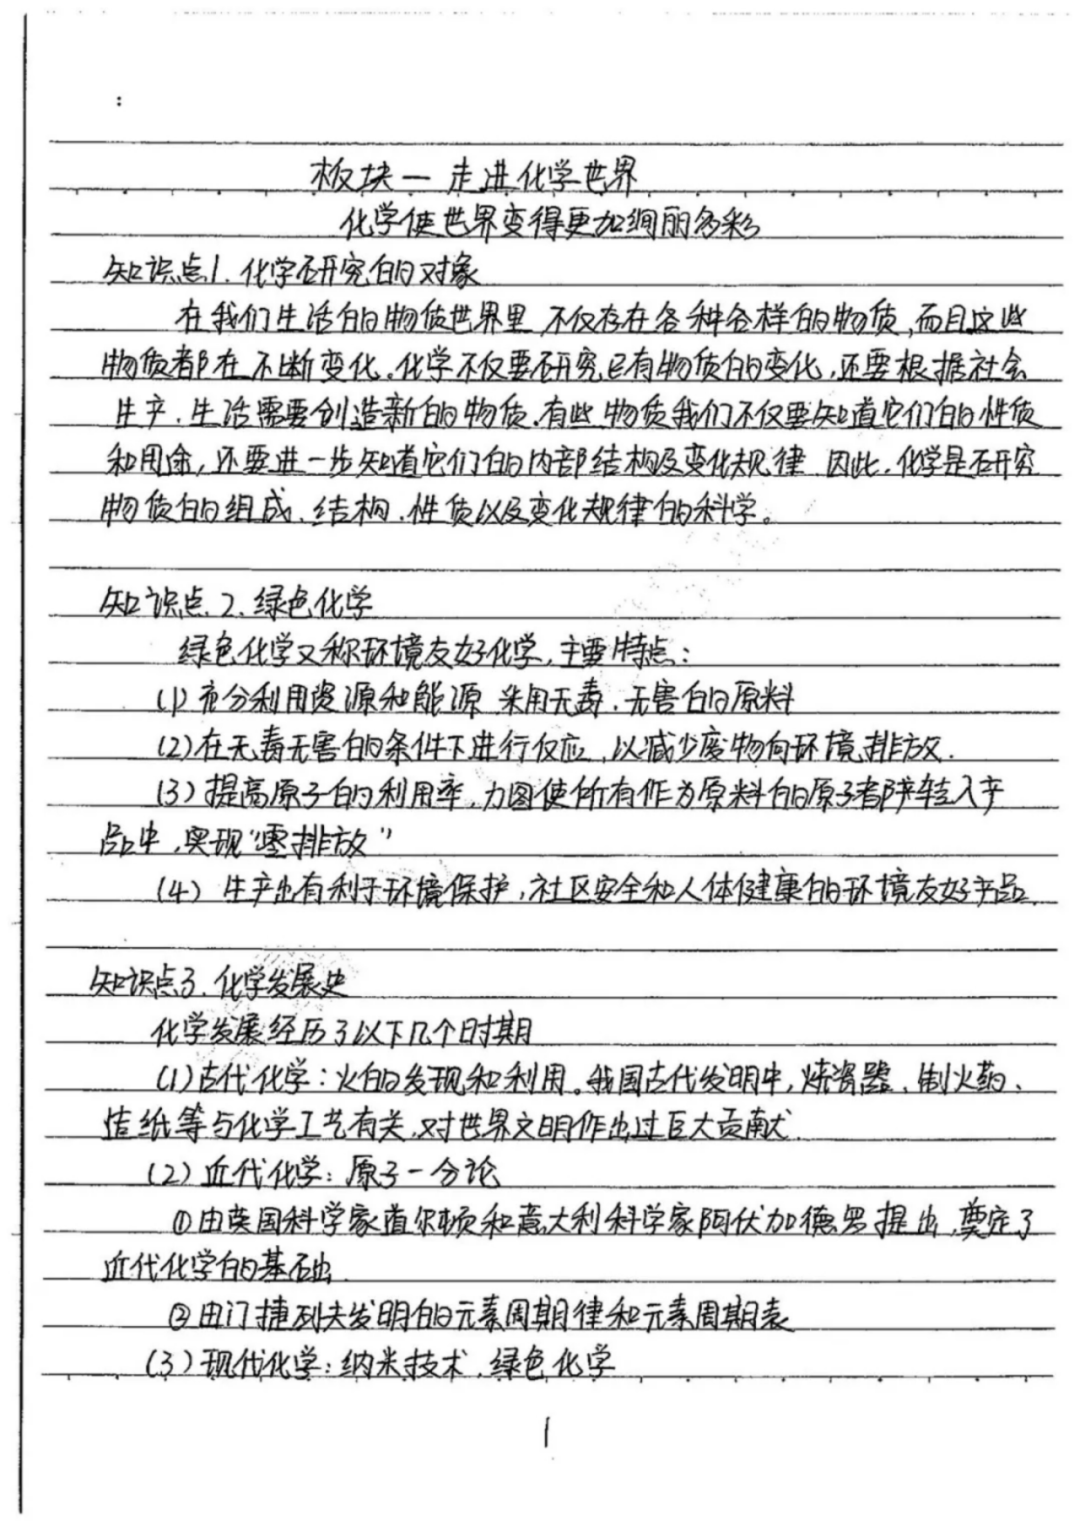 :
板块一 走进化学世界
化学使世界变得更加绚丽多彩
知识点1.化学研究的对象
在我们生活的物质世界里 不仅存在各种各样的物质,而且这些
物质都在不断变化.化学不仅要研究已有物质的变化,还要根据社会
生产.生活需要创造新的物质.有些物质我们不仅要知道它们的性质
和用途,还要进一步知道它们的内部结构及变化规律 因此.化学是研究
物质的组成.结构.性质以及变化规律的科学。
知识点.2.绿色化学
绿色化学又称环境友好化学,主要特点:
(1)充分利用资源和能源 采用无毒.无害的原料
(2)在无毒无害的条件下进行反应,以减少废物向环境排放.
(3)提高原子的利用率,力图使所有作为原料的原子都转入产
品中,实现"零排放"
(4) 生产出有利于环境保护,社区安全和人体健康的环境友好产品.
知识点3.化学发展史
化学发展经历了以下几个时期
(1)古代化学:火的发现和利用。我国古代发明中,烧瓷器、制火药、
造纸等与化学工艺有关,对世界文明作出过巨大贡献.
(2)近代化学:原子一分论
①由英国科学家道尔顿和意大利科学家阿伏加德罗提出,奠定了
近代化学的基础.
②由门捷列夫发明的元素周期律和元素周期表
(3)现代化学:纳米技术.绿色化学
1